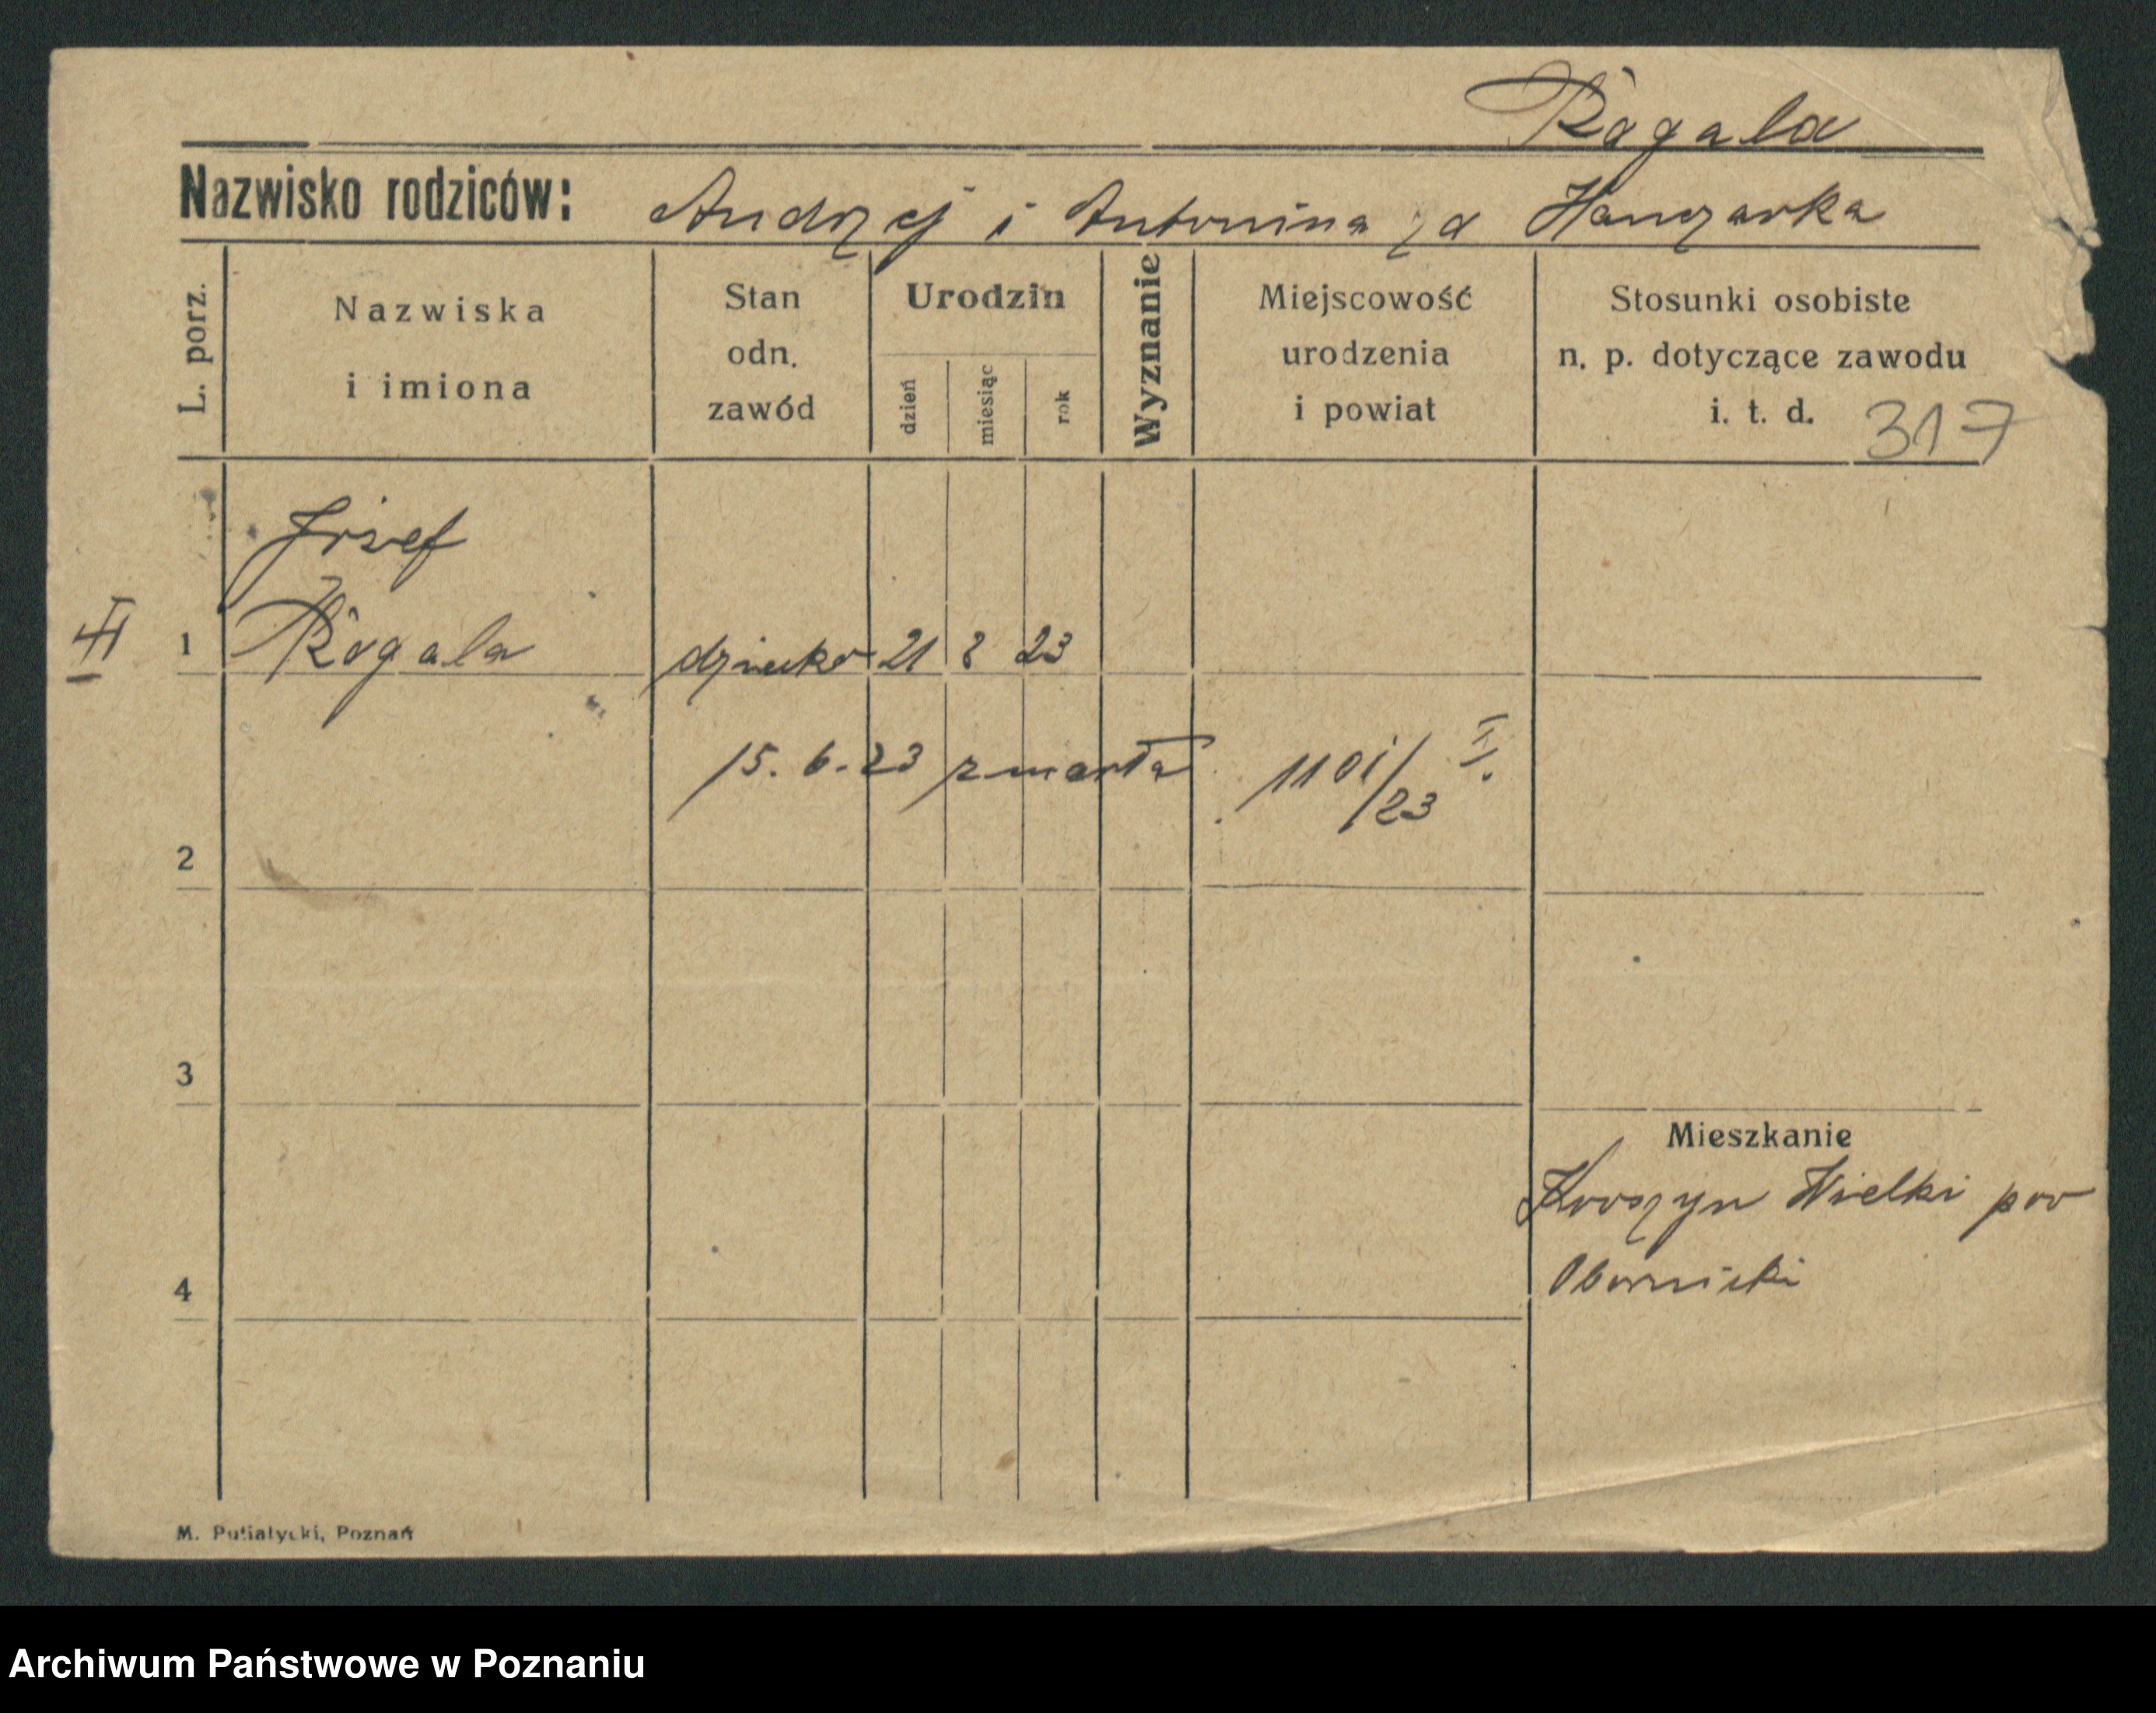 Rogala
Nazwisko rodziców: Andrzej i Antonina za Hanczarka
L. porz.
Nazwiska
i imiona
Stan
odn.
zawód
Urodzin
dzień
miesiąc
rok
Wyznanie
Miejscowość
urodzenia
i powiat
Stosunki osobiste
n. p. dotyczące zawodu
i. t. d. 317
Józef
II 1 Rogala dziecko 21 2 23
15. 6. 23 zmarła 1101/23 II.
2
3
Mieszkanie
Wielki pow
4 Obornicki
M. Putiatycki, Poznań
Archiwum Państwowe w Poznaniu